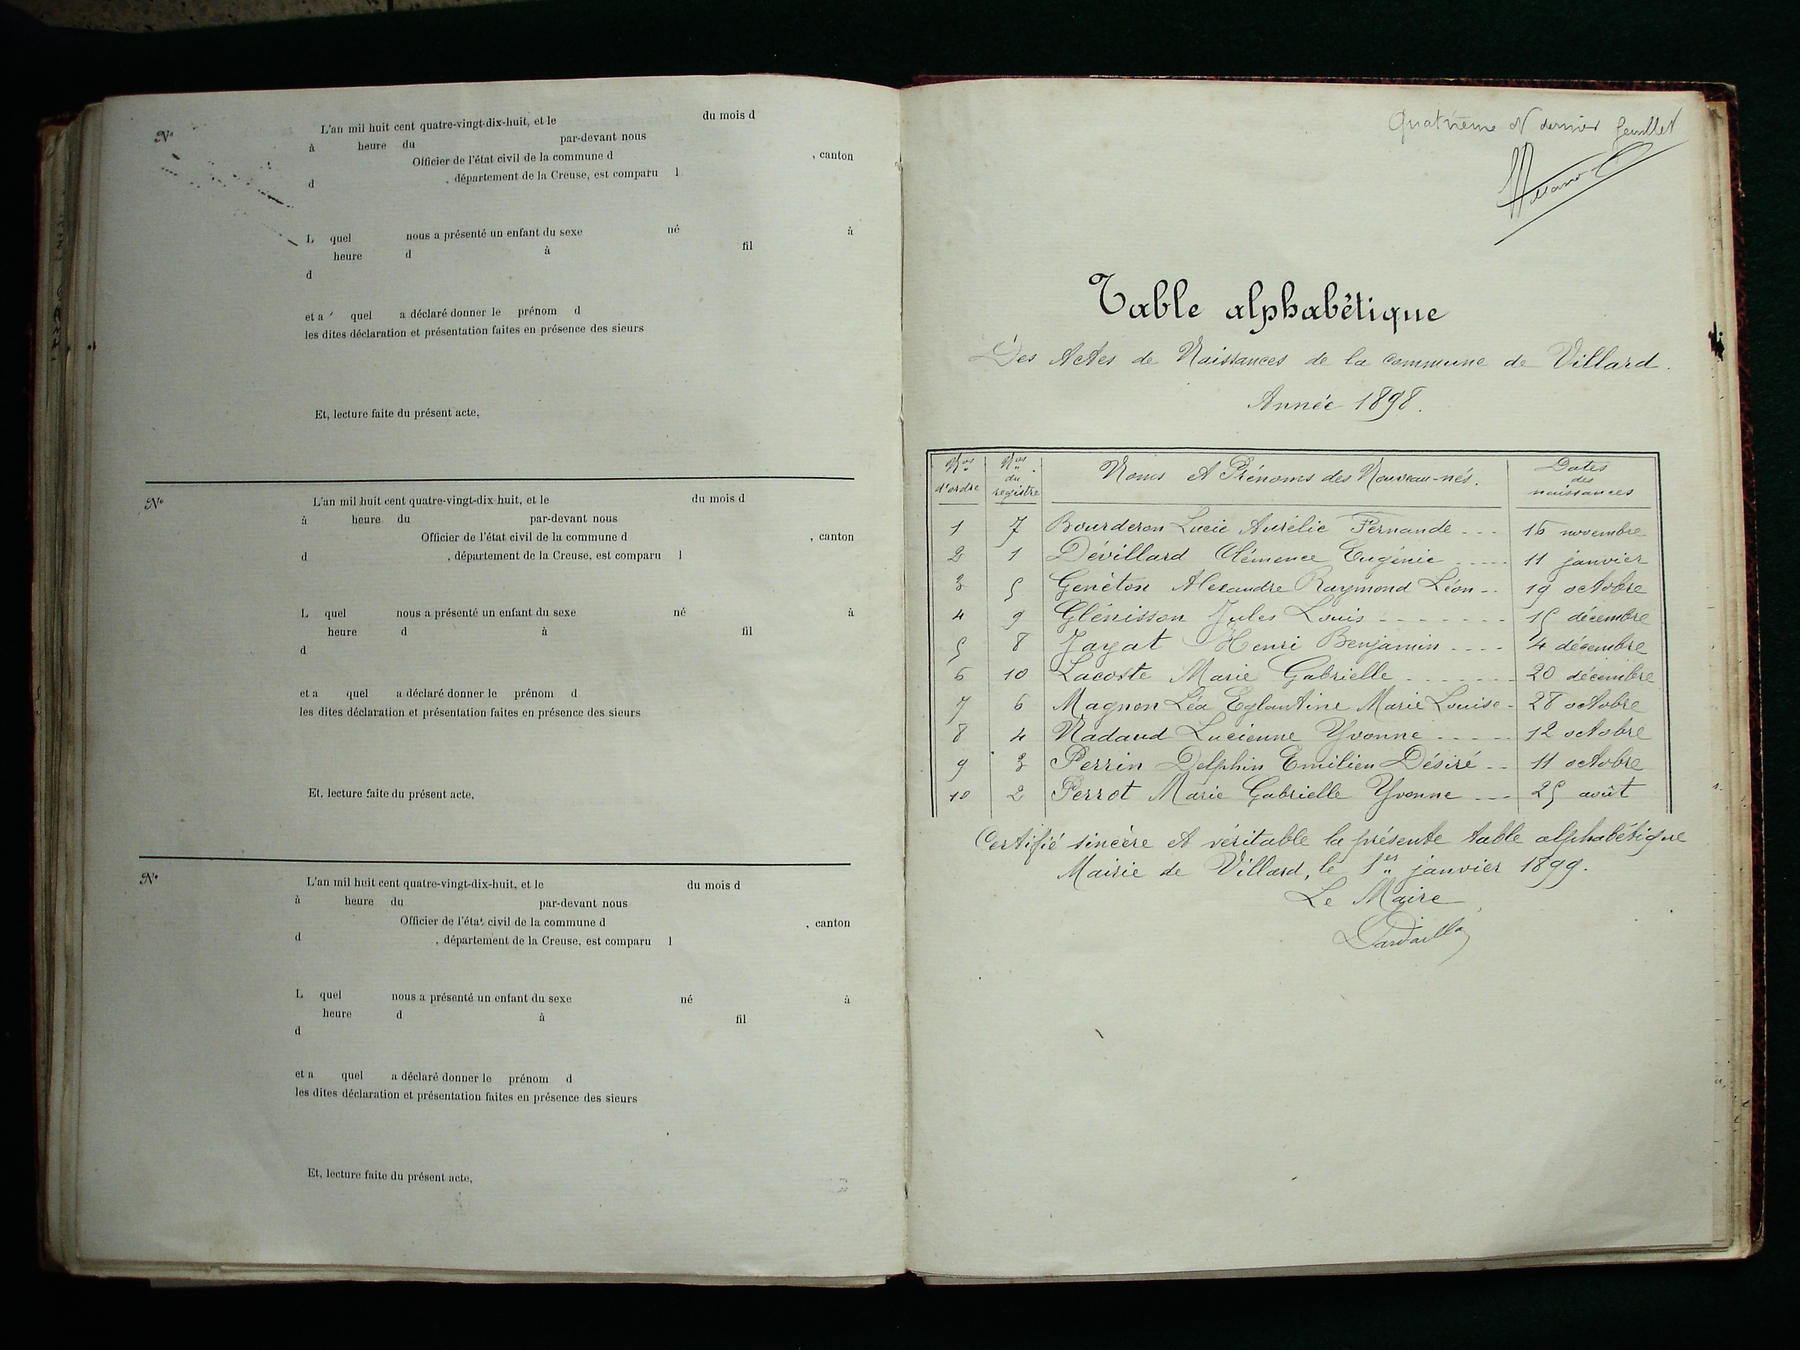 Nº L'an mil huit cent quatre-vingt-dix-huit, et le du mois d
à heure du par-devant nous
Officier de l'état civil de la commune d , canton
d , département de la Creuse, est comparu l
L quel nous a présenté un enfant du sexe né à
heure d à fil
d
et a quel a déclaré donner le prénom d
les dites déclaration et présentation faites en présence des sieurs
Et, lecture faite du présent acte,
Nº L'an mil huit cent quatre-vingt-dix-huit, et le du mois d
à heure du par-devant nous
Officier de l'état civil de la commune d , canton
d , département de la Creuse, est comparu l
L quel nous a présenté un enfant du sexe né à
heure d à fil
d
et a quel a déclaré donner le prénom d
les dites déclaration et présentation faites en présence des sieurs
Et, lecture faite du présent acte,
Nº L'an mil huit cent quatre-vingt-dix-huit, et le du mois d
à heure du par-devant nous
Officier de l'état civil de la commune d , canton
d , département de la Creuse, est comparu l
L quel nous a présenté un enfant du sexe né à
heure d à fil
d
et a quel a déclaré donner le prénom d
les dites déclaration et présentation faites en présence des sieurs
Et, lecture faite du présent acte,
Quatrième et dernier feuillet
Table alphabétique
Des Actes de Naissances de la commune de Villard.
Année 1898.
Nos d'ordre Nos du registre Noms et Prénoms des Nouveau-nés. Dates des naissances
1 7 Bourderon Lucie Aurélie Fernande --- 16 novembre
2 1 Dévillard Clémence Eugénie ---- 11 janvier
3 5 Genéton Alexandre Raymond Léon -- 19 octobre
4 9 Glénisson Jules Louis ------- 15 décembre
5 8 Jayat Henri Benjamin ---- 4 décembre
6 10 Lacoste Marie Gabrielle ------ 20 décembre
7 6 Magnon Léa Eglantine Marie Louise - 28 octobre
8 4 Nadaud Lucienne Yvonne ----- 12 octobre
9 3 Perrin Delphin Emilien Désiré -- 11 octobre
10 2 Perrot Marie Gabrielle Yvonne --- 25 août
Certifié sincère et véritable la présente table alphabétique
Mairie de Villard, le 1er janvier 1899.
Le Maire